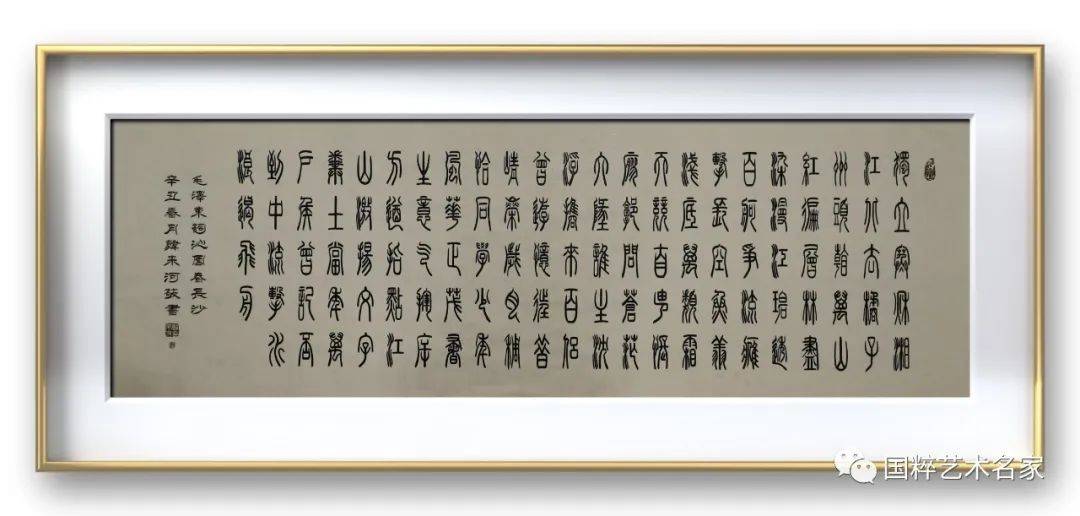 獨立寒秋湘
江北去橘子
州頭看萬山
紅遍層林盡
染漫江碧透
百舸爭流鷹
擊長空魚翔
淺底萬類霜
天競自由悵
寥廓問蒼茫
大地誰主沈
浮攜來百侶
曾遊憶往昔
崢嶸歲月稠
恰同學少年
風華正茂書
生意气揮斥
方遒指點江
山激揚文字
糞土當年萬
戶侯曾記否
到中流擊水
浪遏飛舟
毛澤東詞沁園春長沙
辛丑春月韓來河書
国粹艺术名家